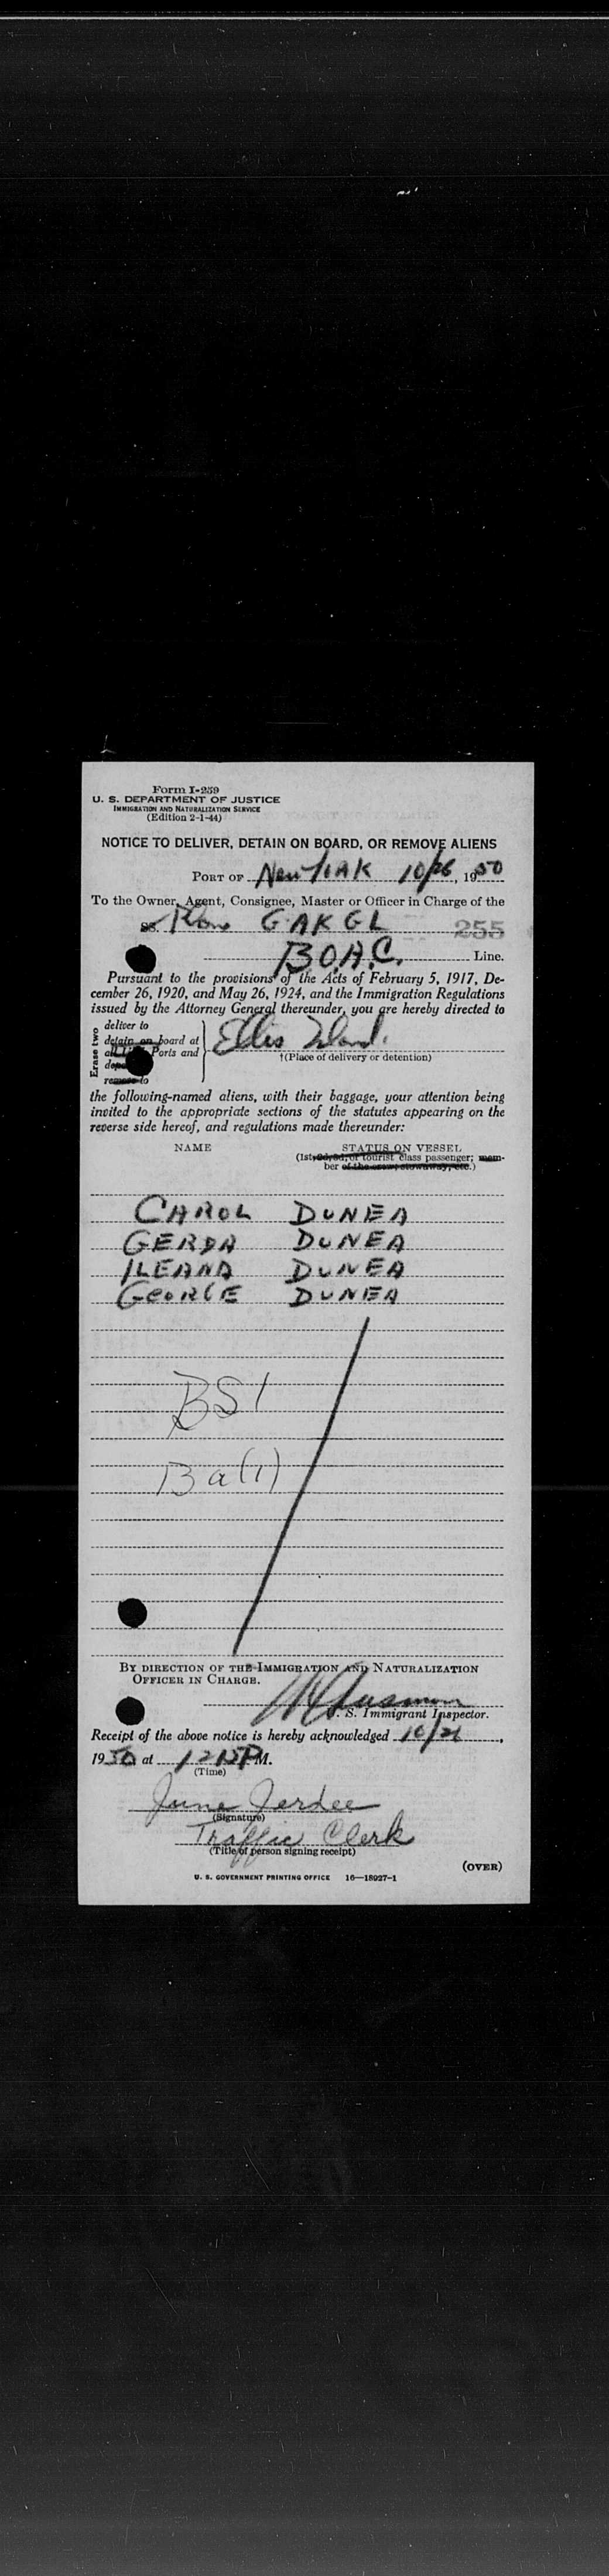 Form I-259
U. S. DEPARTMENT OF JUSTICE
IMMIGRATION AND NATURALIZATION SERVICE
(Edition 2-1-44)
NOTICE TO DELIVER, DETAIN ON BOARD, OR REMOVE ALIENS
PORT OF New York 10/26, 1950
To the Owner, Agent, Consignee, Master or Officer in Charge of the
SS. GAKGL 255
B.O.A.C. Line.
Pursuant to the provisions of the Acts of February 5, 1917, De-
cember 26, 1920, and May 26, 1924, and the Immigration Regulations
issued by the Attorney General thereunder, you are hereby directed to
Erase two
deliver to
detain on board at
all Ports and
remove to
Ellis Island.
†(Place of delivery or detention)
the following-named aliens, with their baggage, your attention being
invited to the appropriate sections of the statutes appearing on the
reverse side hereof, and regulations made thereunder:
NAME STATUS ON VESSEL
(1st, 2d, 3d, or tourist class passenger; mem-
ber of the crew, stowaway, etc.)
CAROL DUNEA
GERDA DUNEA
ILEANA DUNEA
GEORGE DUNEA
BSI
Ba(1)
BY DIRECTION OF THE IMMIGRATION AND NATURALIZATION
OFFICER IN CHARGE.
U. S. Immigrant Inspector.
Receipt of the above notice is hereby acknowledged 10/26,
1950 at 1215 P M.
(Time)
June Jerdee
(Signature)
Traffic Clerk
(Title of person signing receipt)
(OVER)
U. S. GOVERNMENT PRINTING OFFICE 16—18027-1